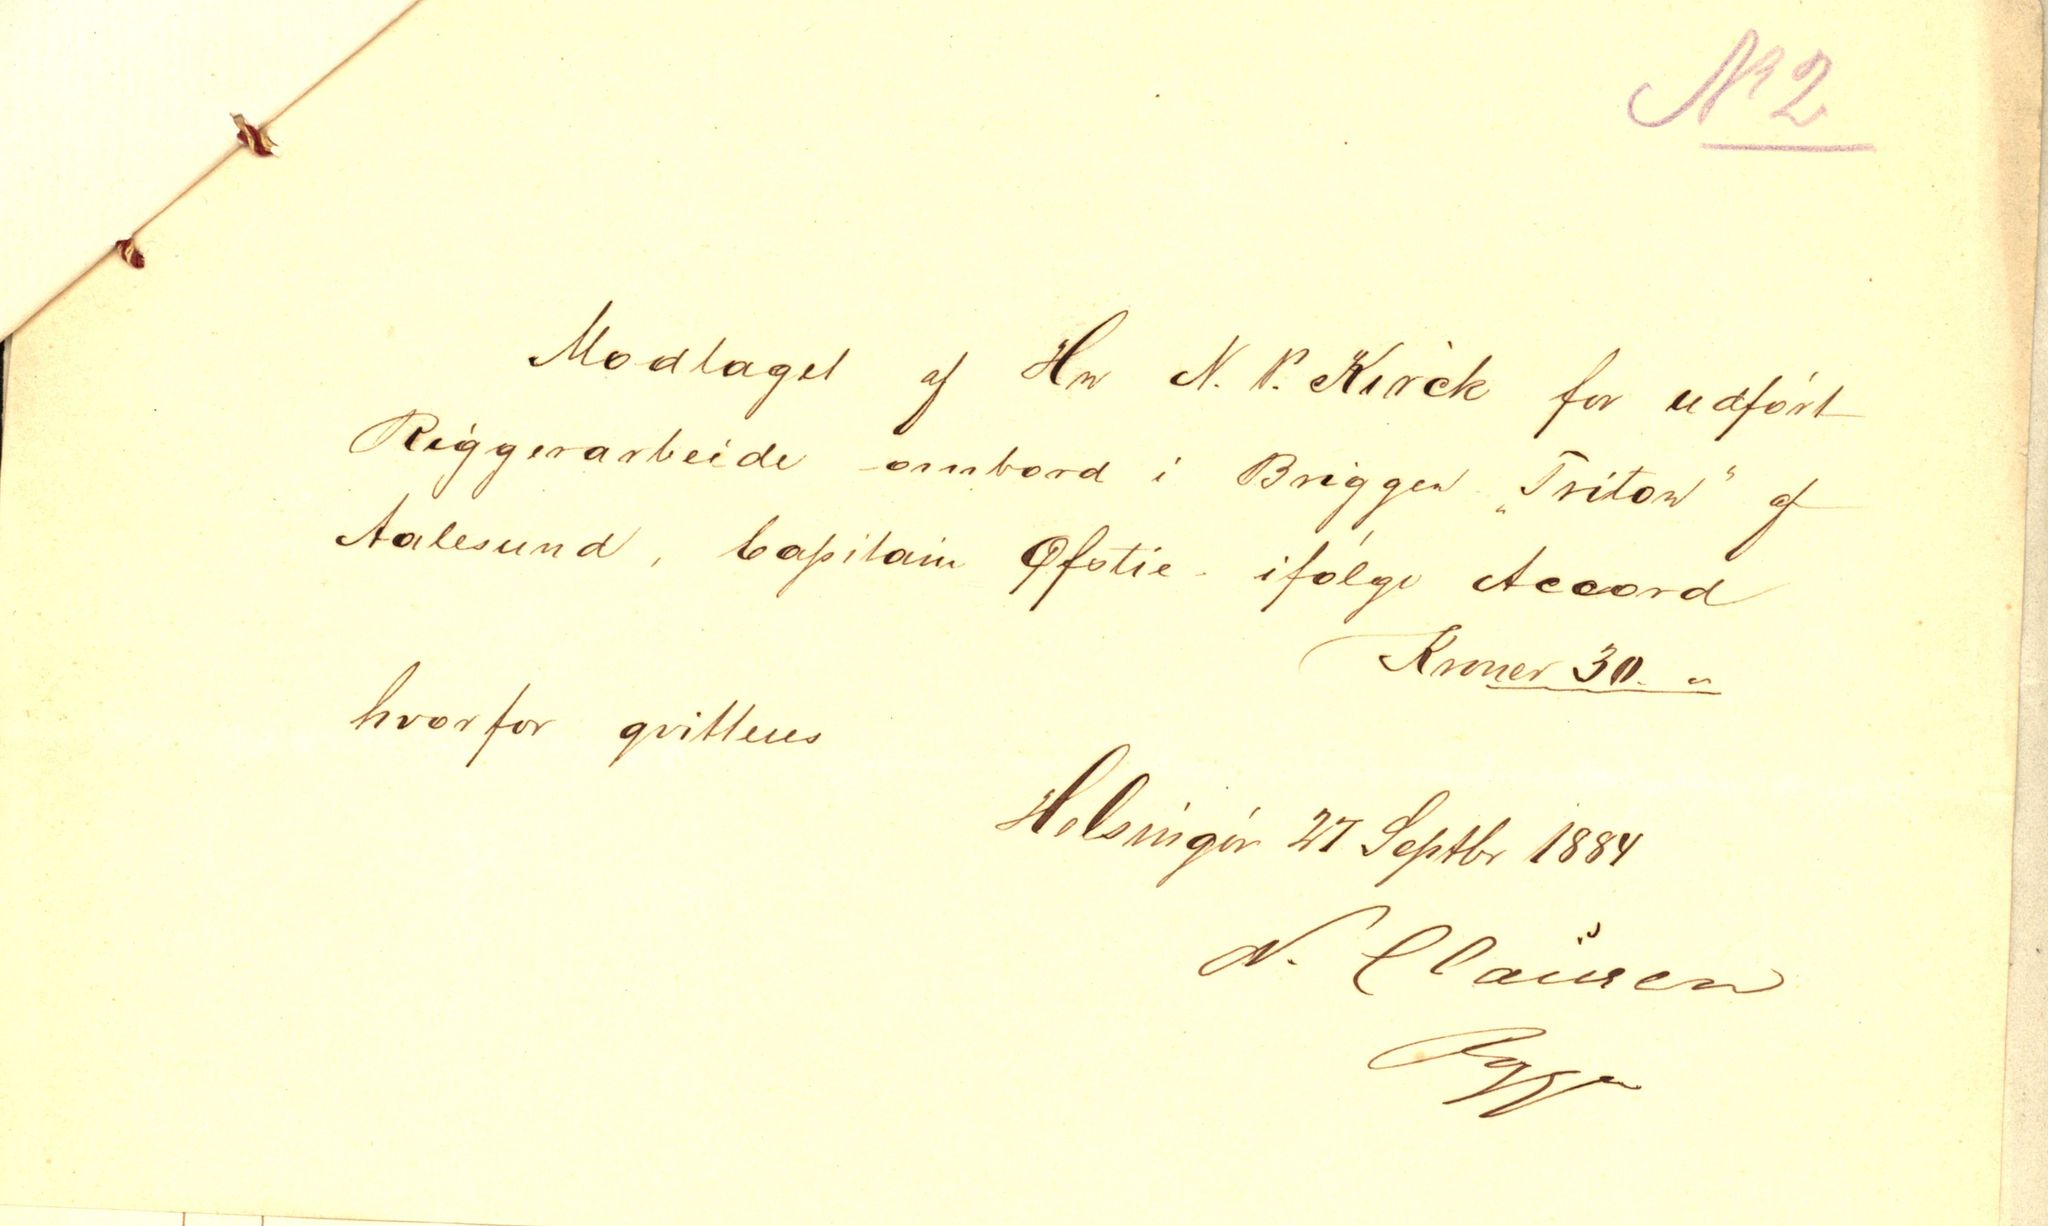 No 2
Modtaget af Hr N. P. Kirck for udført
Riggerarbeide ombord i Briggen „Triton" af
Aalesund, Capitain Øfstie ifølge Accord
Kroner 30. "
hvorfor qvitteres
Helsingør 27 Septbr 1884
N. Claŭsen
Rigger